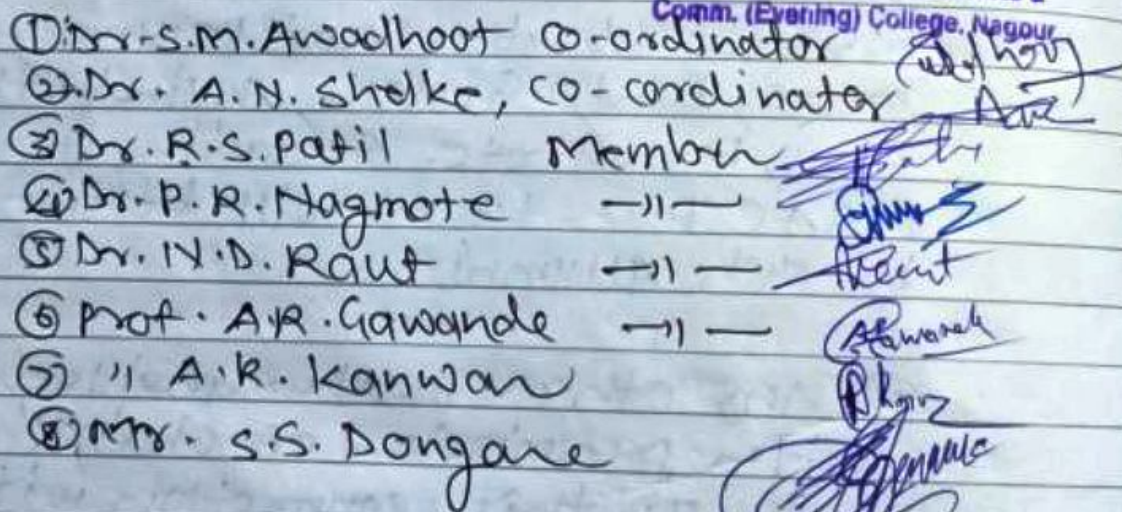 Comm. (Evening) College, Nagpur
① Dr. S.M. Awadhoot Co-ordinator
②. Dr. A.N. Shelke, Co-cordinater
③ Dr. R.S. Patil Member
④ Dr. P.R. Nagmote —〃—
⑤ Dr. N.D. Raut —〃— Raut
⑥ Prof. A.R. Gawande —〃— Gawande
⑦ 〃 A.R. Kanwar
⑧ Mr. S.S. Dongare